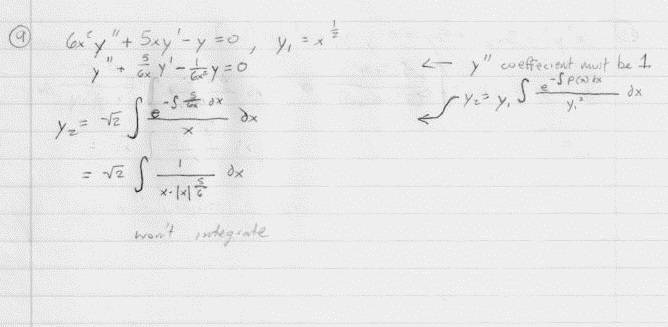 9 6x²y" + 5xy' - y = 0 , y₁ = x^(1/2)
y" + 5/(6x) y' - 1/(6x²) y = 0 ← y" coeffecient must be 1
y₂ = y₁ ∫ e^(-∫P(x)dx) / y₁² dx
y₂ = √2 ∫ e^(-∫ 5/(6x) dx) / x dx
= √2 ∫ 1 / (x·|x|^(5/6)) dx
won't integrate